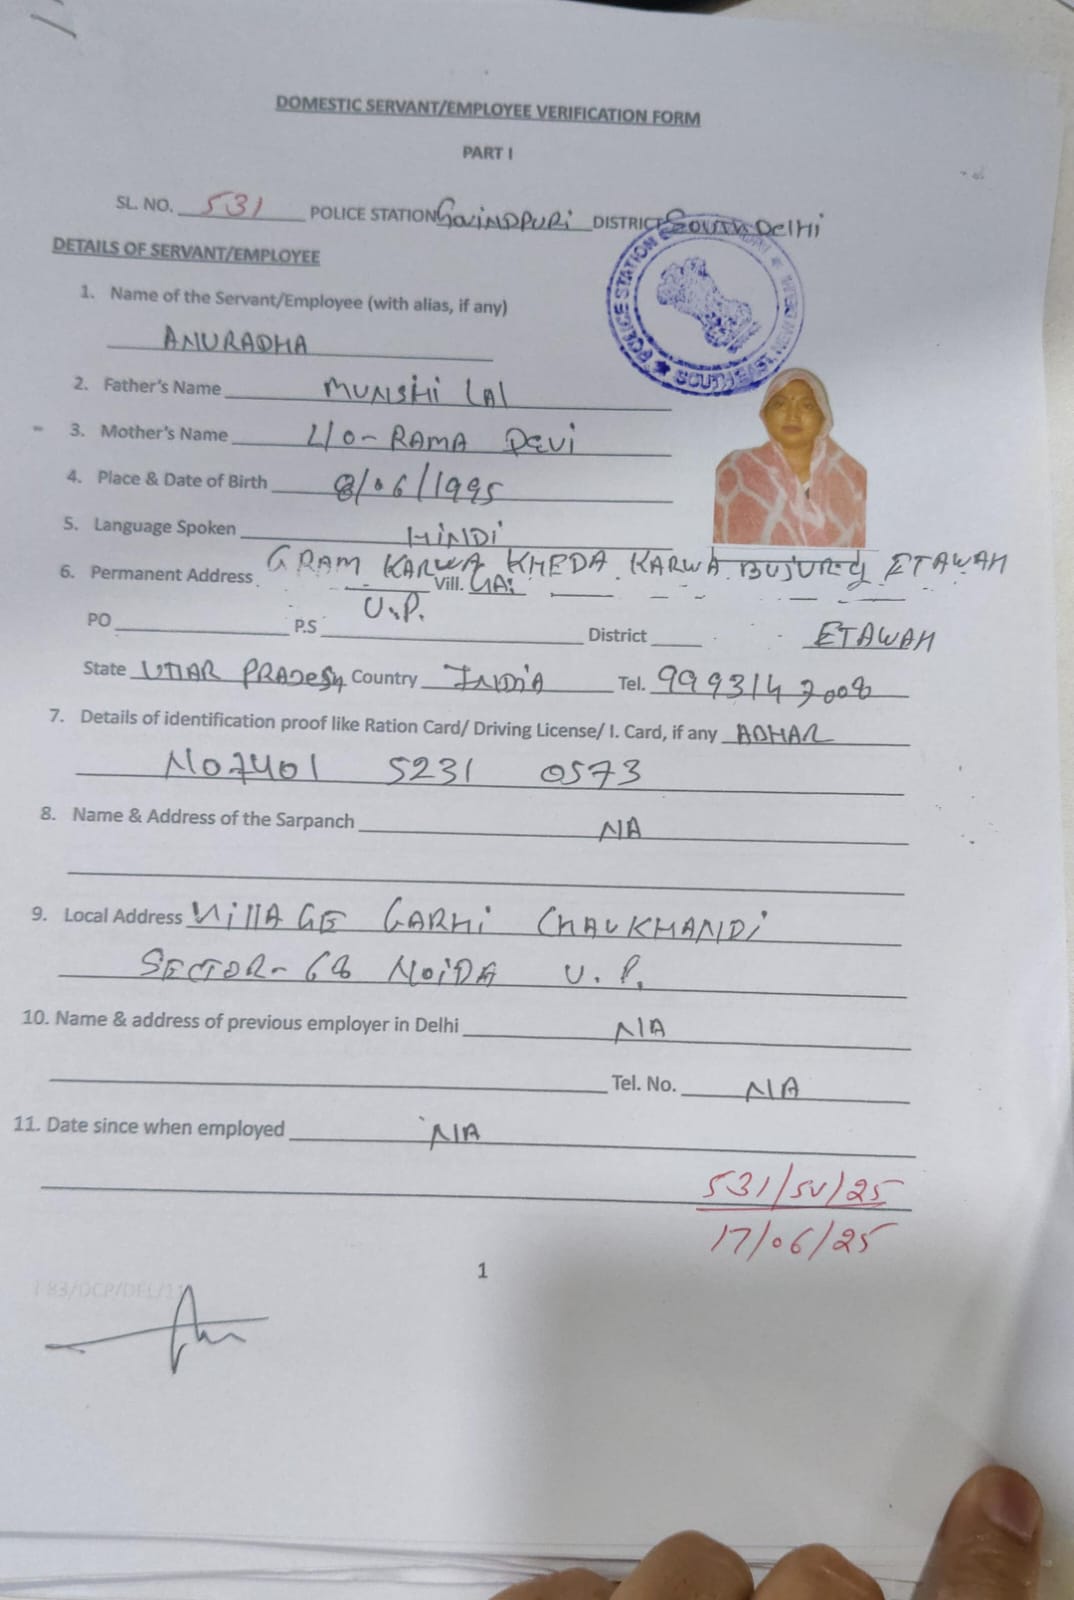 DOMESTIC SERVANT/EMPLOYEE VERIFICATION FORM
PART I
SL. NO. 531 POLICE STATION GoviNDPURi DISTRICT SOUTH DelHi
POLICE STATION SOUTH EAST, NEW DELHI
DETAILS OF SERVANT/EMPLOYEE
1. Name of the Servant/Employee (with alias, if any)
ANURADHA
2. Father's Name MUNSHi LAl
3. Mother's Name L/O-RAMA DEVi
4. Place & Date of Birth 8/06/1995
5. Language Spoken HiNDi
6. Permanent Address GRAM KARWA KHEDA KARWA BUJURG ETAWAH
Vill.
U.P.
PO P.S District ETAWAH
State UTTAR PRADESH Country INDiA Tel. 9993147008
7. Details of identification proof like Ration Card/ Driving License/ I. Card, if any ADHAR
No 7401 5231 0573
8. Name & Address of the Sarpanch NA
9. Local Address VillAGE GARHi CHAUKHANDi
SECTOR-68 NOiDA U.P.
10. Name & address of previous employer in Delhi N/A
Tel. No. N/A
11. Date since when employed N/A
531/SV/25
17/06/25
1